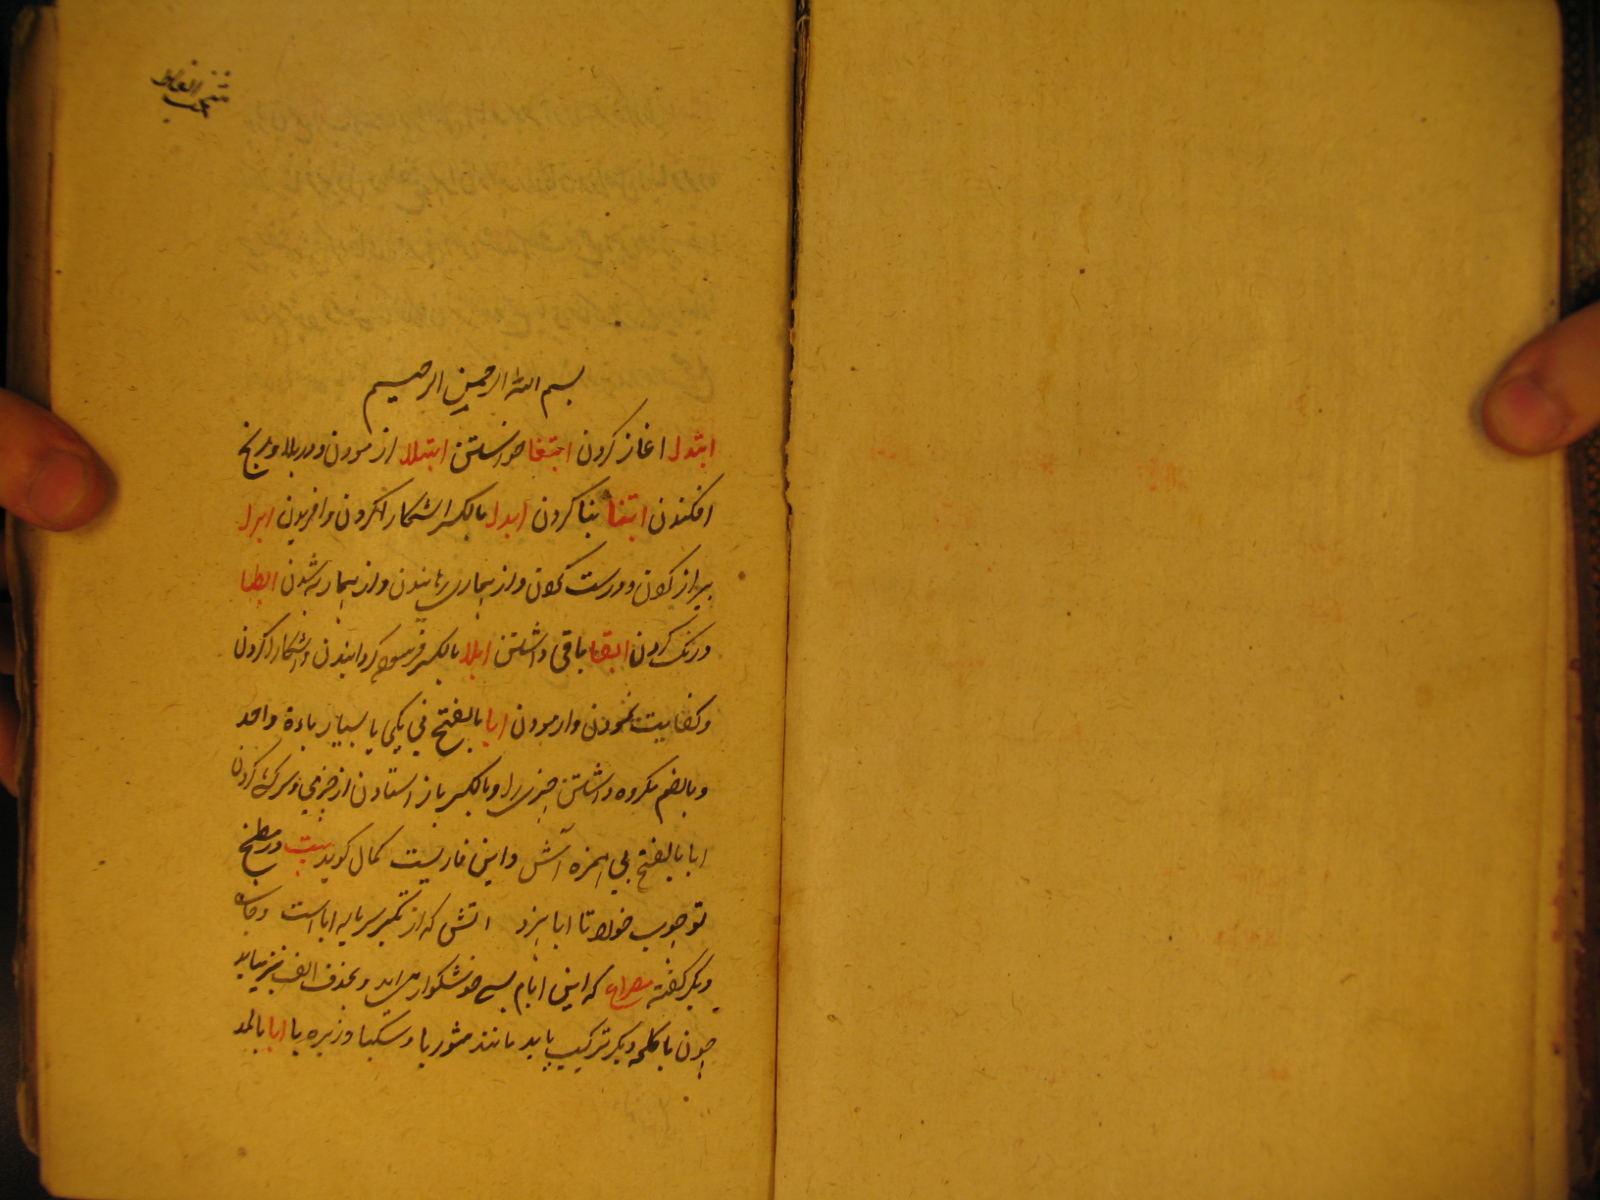 منتخب اللغات
بسم الله الرحمن الرحیم
ابتدا اغاز کردن ابتغا خواستن ابتلا ازمودن و در بلا و رنج
افکندن ابتنا بنا کردن ابدا بالکسر اشکارا کردن و افریدن ابرا
بیزار کردن و درست کردن و از بیماری رهانیدن و از بیمار به شدن ابطا
درنگ کردن ابقا باقی داشتن ابلا بالکسر فرسوده گردانیدن و اشکارا کردن
و کفایت نمودن و ازمودن ابا بالفتح نی یکی یا بسیار باءة واحد
و بالضم مکروه داشتن چیزی را و بالکسر باز استادن از چیزی و سرکشی کردن
ابا بالفتح بی همزه آش و این فارسیست کمال گوید بیت در مطبخ
تو چوب خورد تا ابا پزد اتش که از تکبر سرمایه ابا است و جای
دیگر گفته مصراع که این ابام بسی خوشگوار می اید و بحذف الف نیز بیاید
چون با کلمه دیگر ترکیب یابد مانند شوربا و سکبا و زیره با ابا بالمد